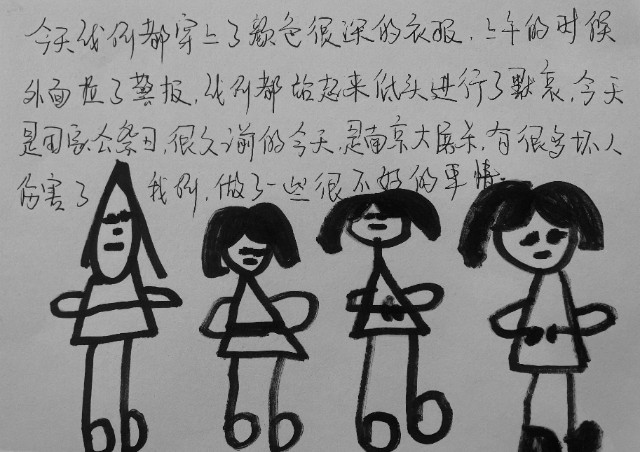 今天我们都穿上了颜色很深的衣服，上午的时候
外面拉了警报，我们都站起来低头进行了默哀，今天
是国家公祭日，很久前的今天，是南京大屠杀，有很多坏人
伤害了 我们，做了一些很不好的事情。